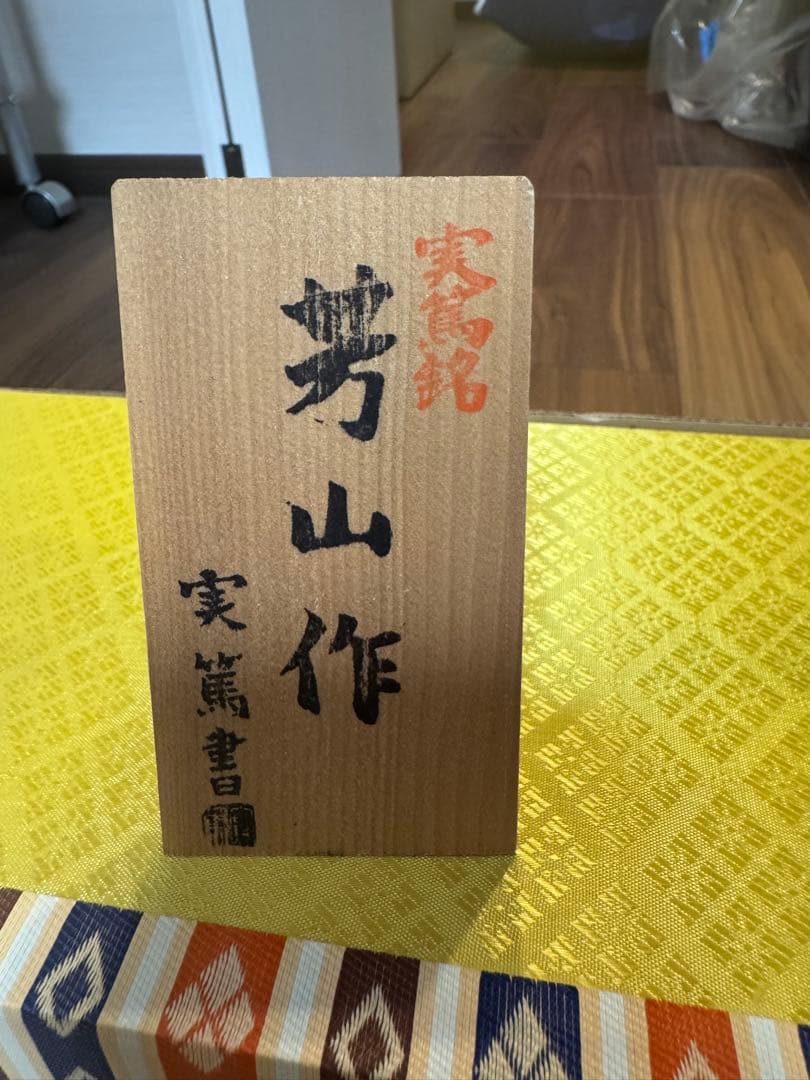 実篤銘
芳山作
実篤書